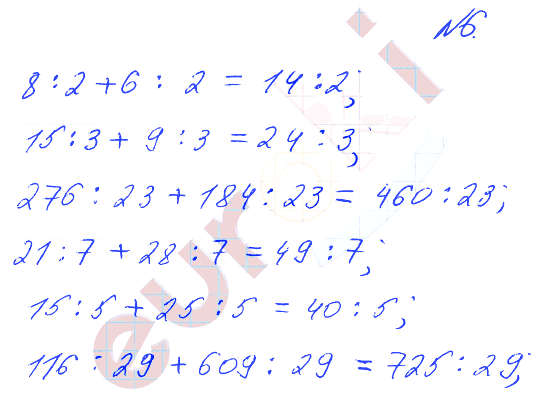 №6.
8 : 2 + 6 : 2 = 14 : 2;
15 : 3 + 9 : 3 = 24 : 3;
276 : 23 + 184 : 23 = 460 : 23;
21 : 7 + 28 : 7 = 49 : 7;
15 : 5 + 25 : 5 = 40 : 5;
116 : 29 + 609 : 29 = 725 : 29;
euroki